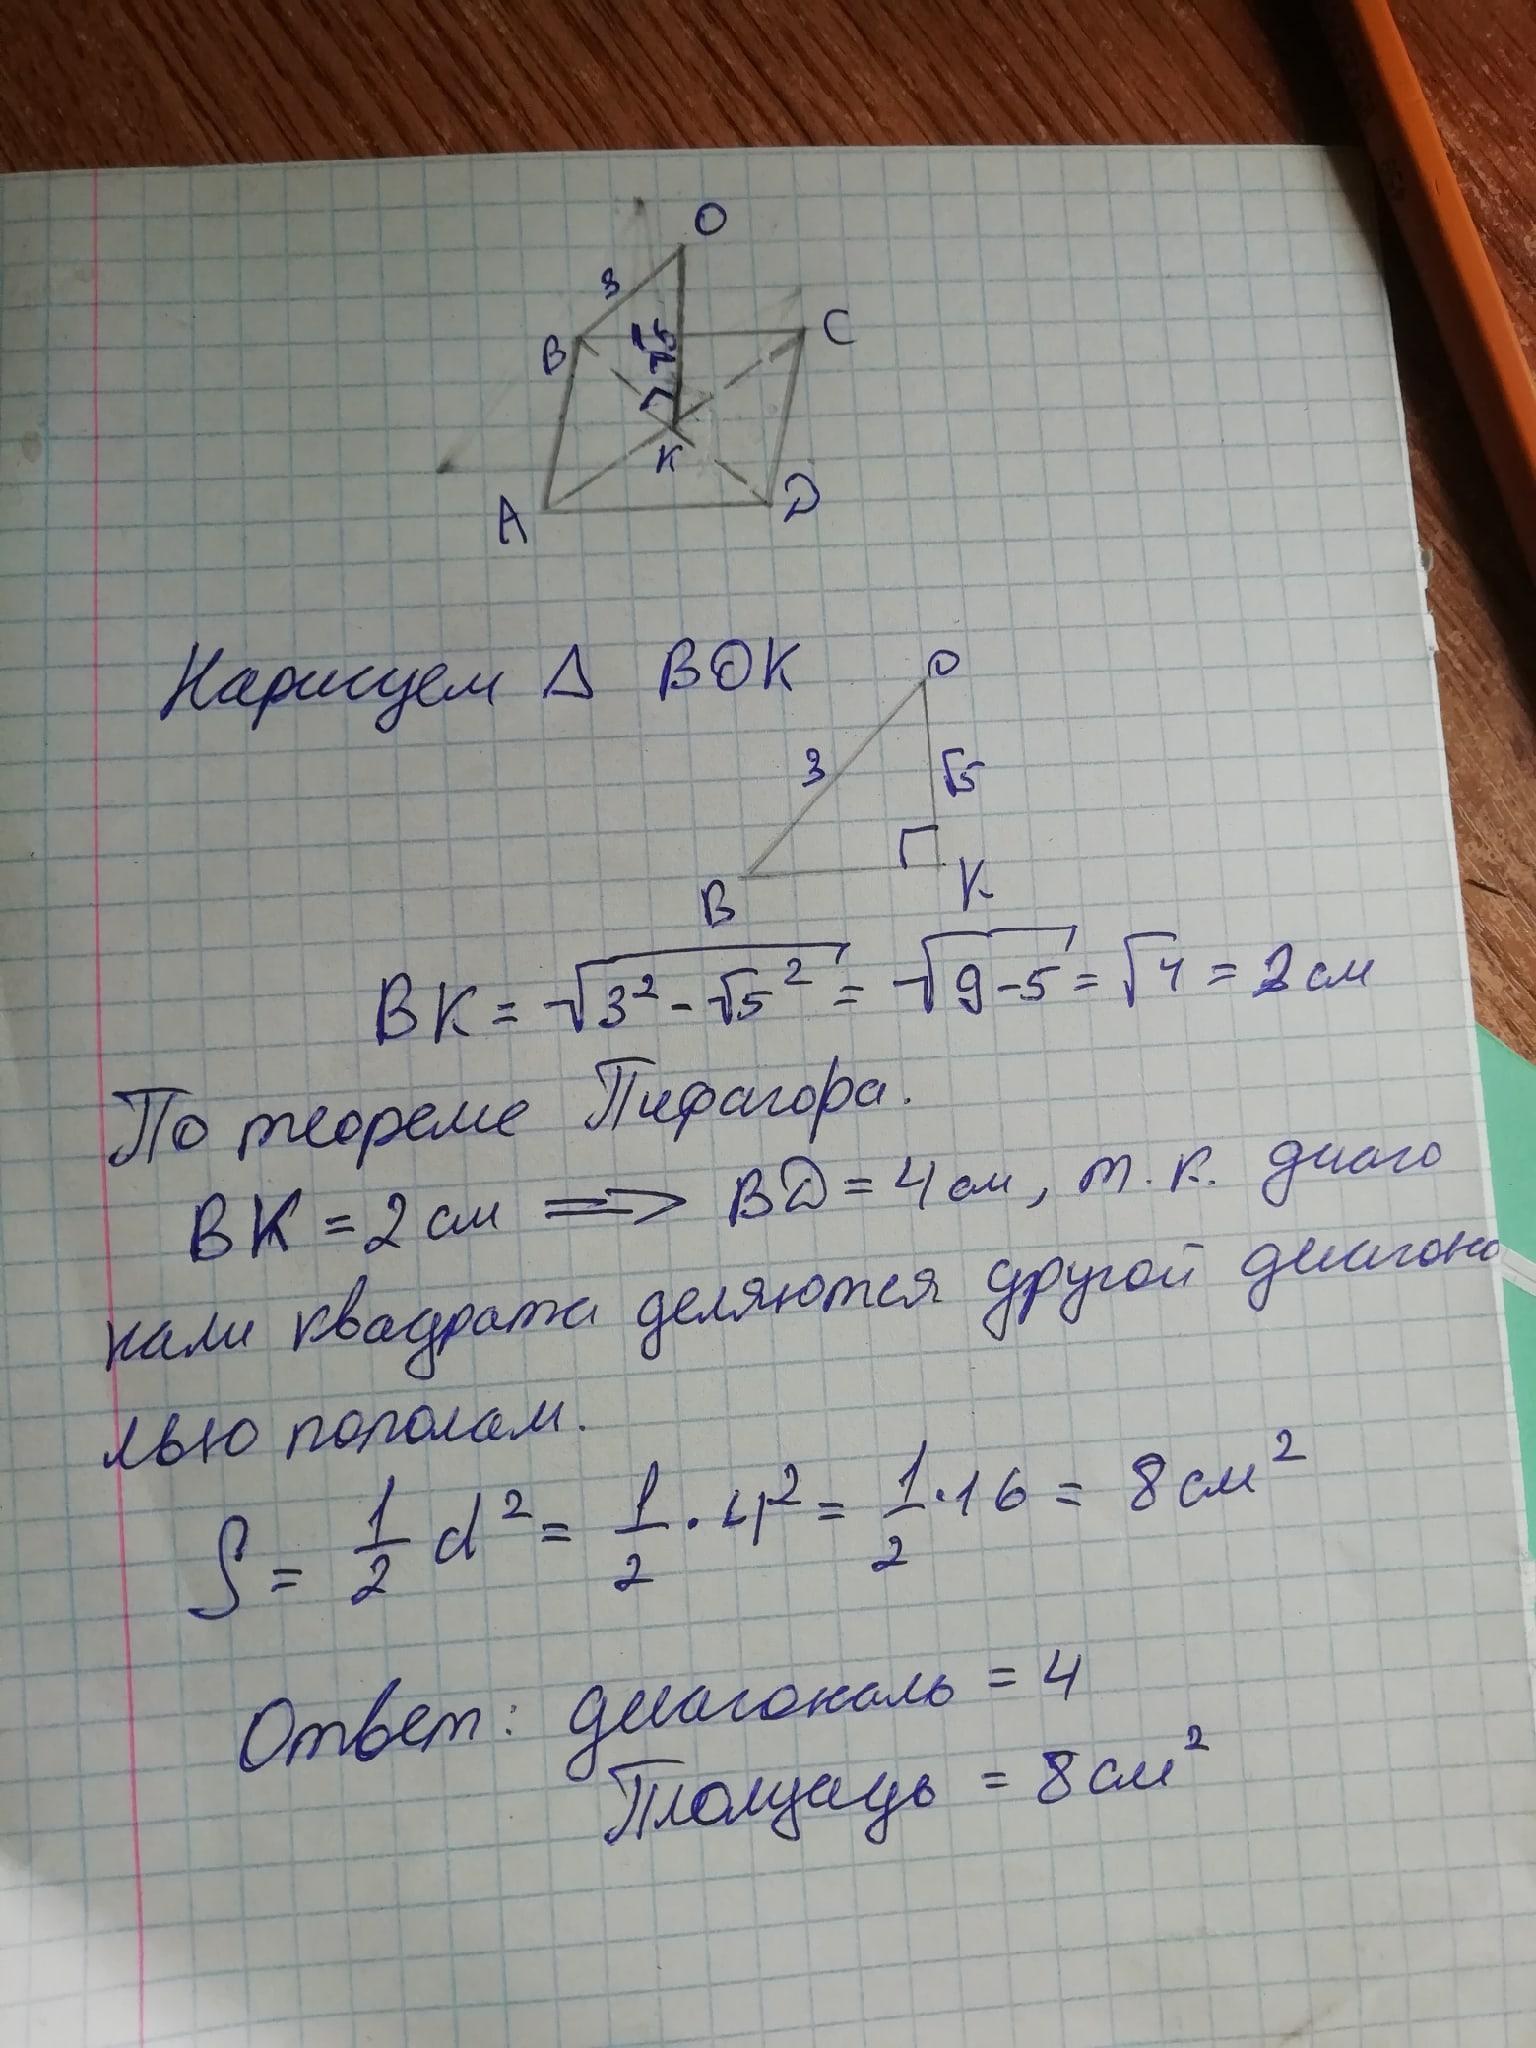 O
3
B
√5
C
K
A
D
Нарисуем Δ BOK
O
3
√5
B
K
BK = √3² - √5² = √9-5 = √4 = 2 см
По теореме Пифагора.
BK = 2 см ⟹ BD = 4 см, т.к. диаго
нали квадрата деляются другой диагона
лью пополам.
S = 1/2 d² = 1/2 · 4² = 1/2 · 16 = 8 см²
Ответ: диагональ = 4
Площадь = 8 см²